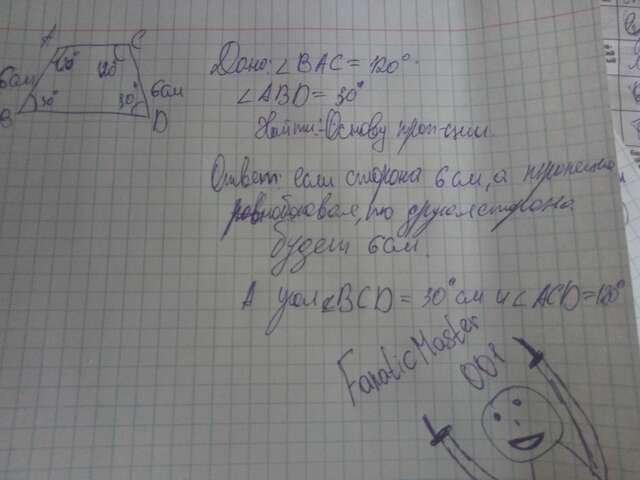 A C
120° 120°
6см 6см
30° 30°
B D
Дано: ∠BAC = 120°.
∠ABD = 30°
Найти:-Основу
Ответ: если сторона 6см, а
равнобокая, то другая сторона
будет 6см.
А угол ∠BCD = 30° см и ∠ACD = 120°
FanaticMaster
001